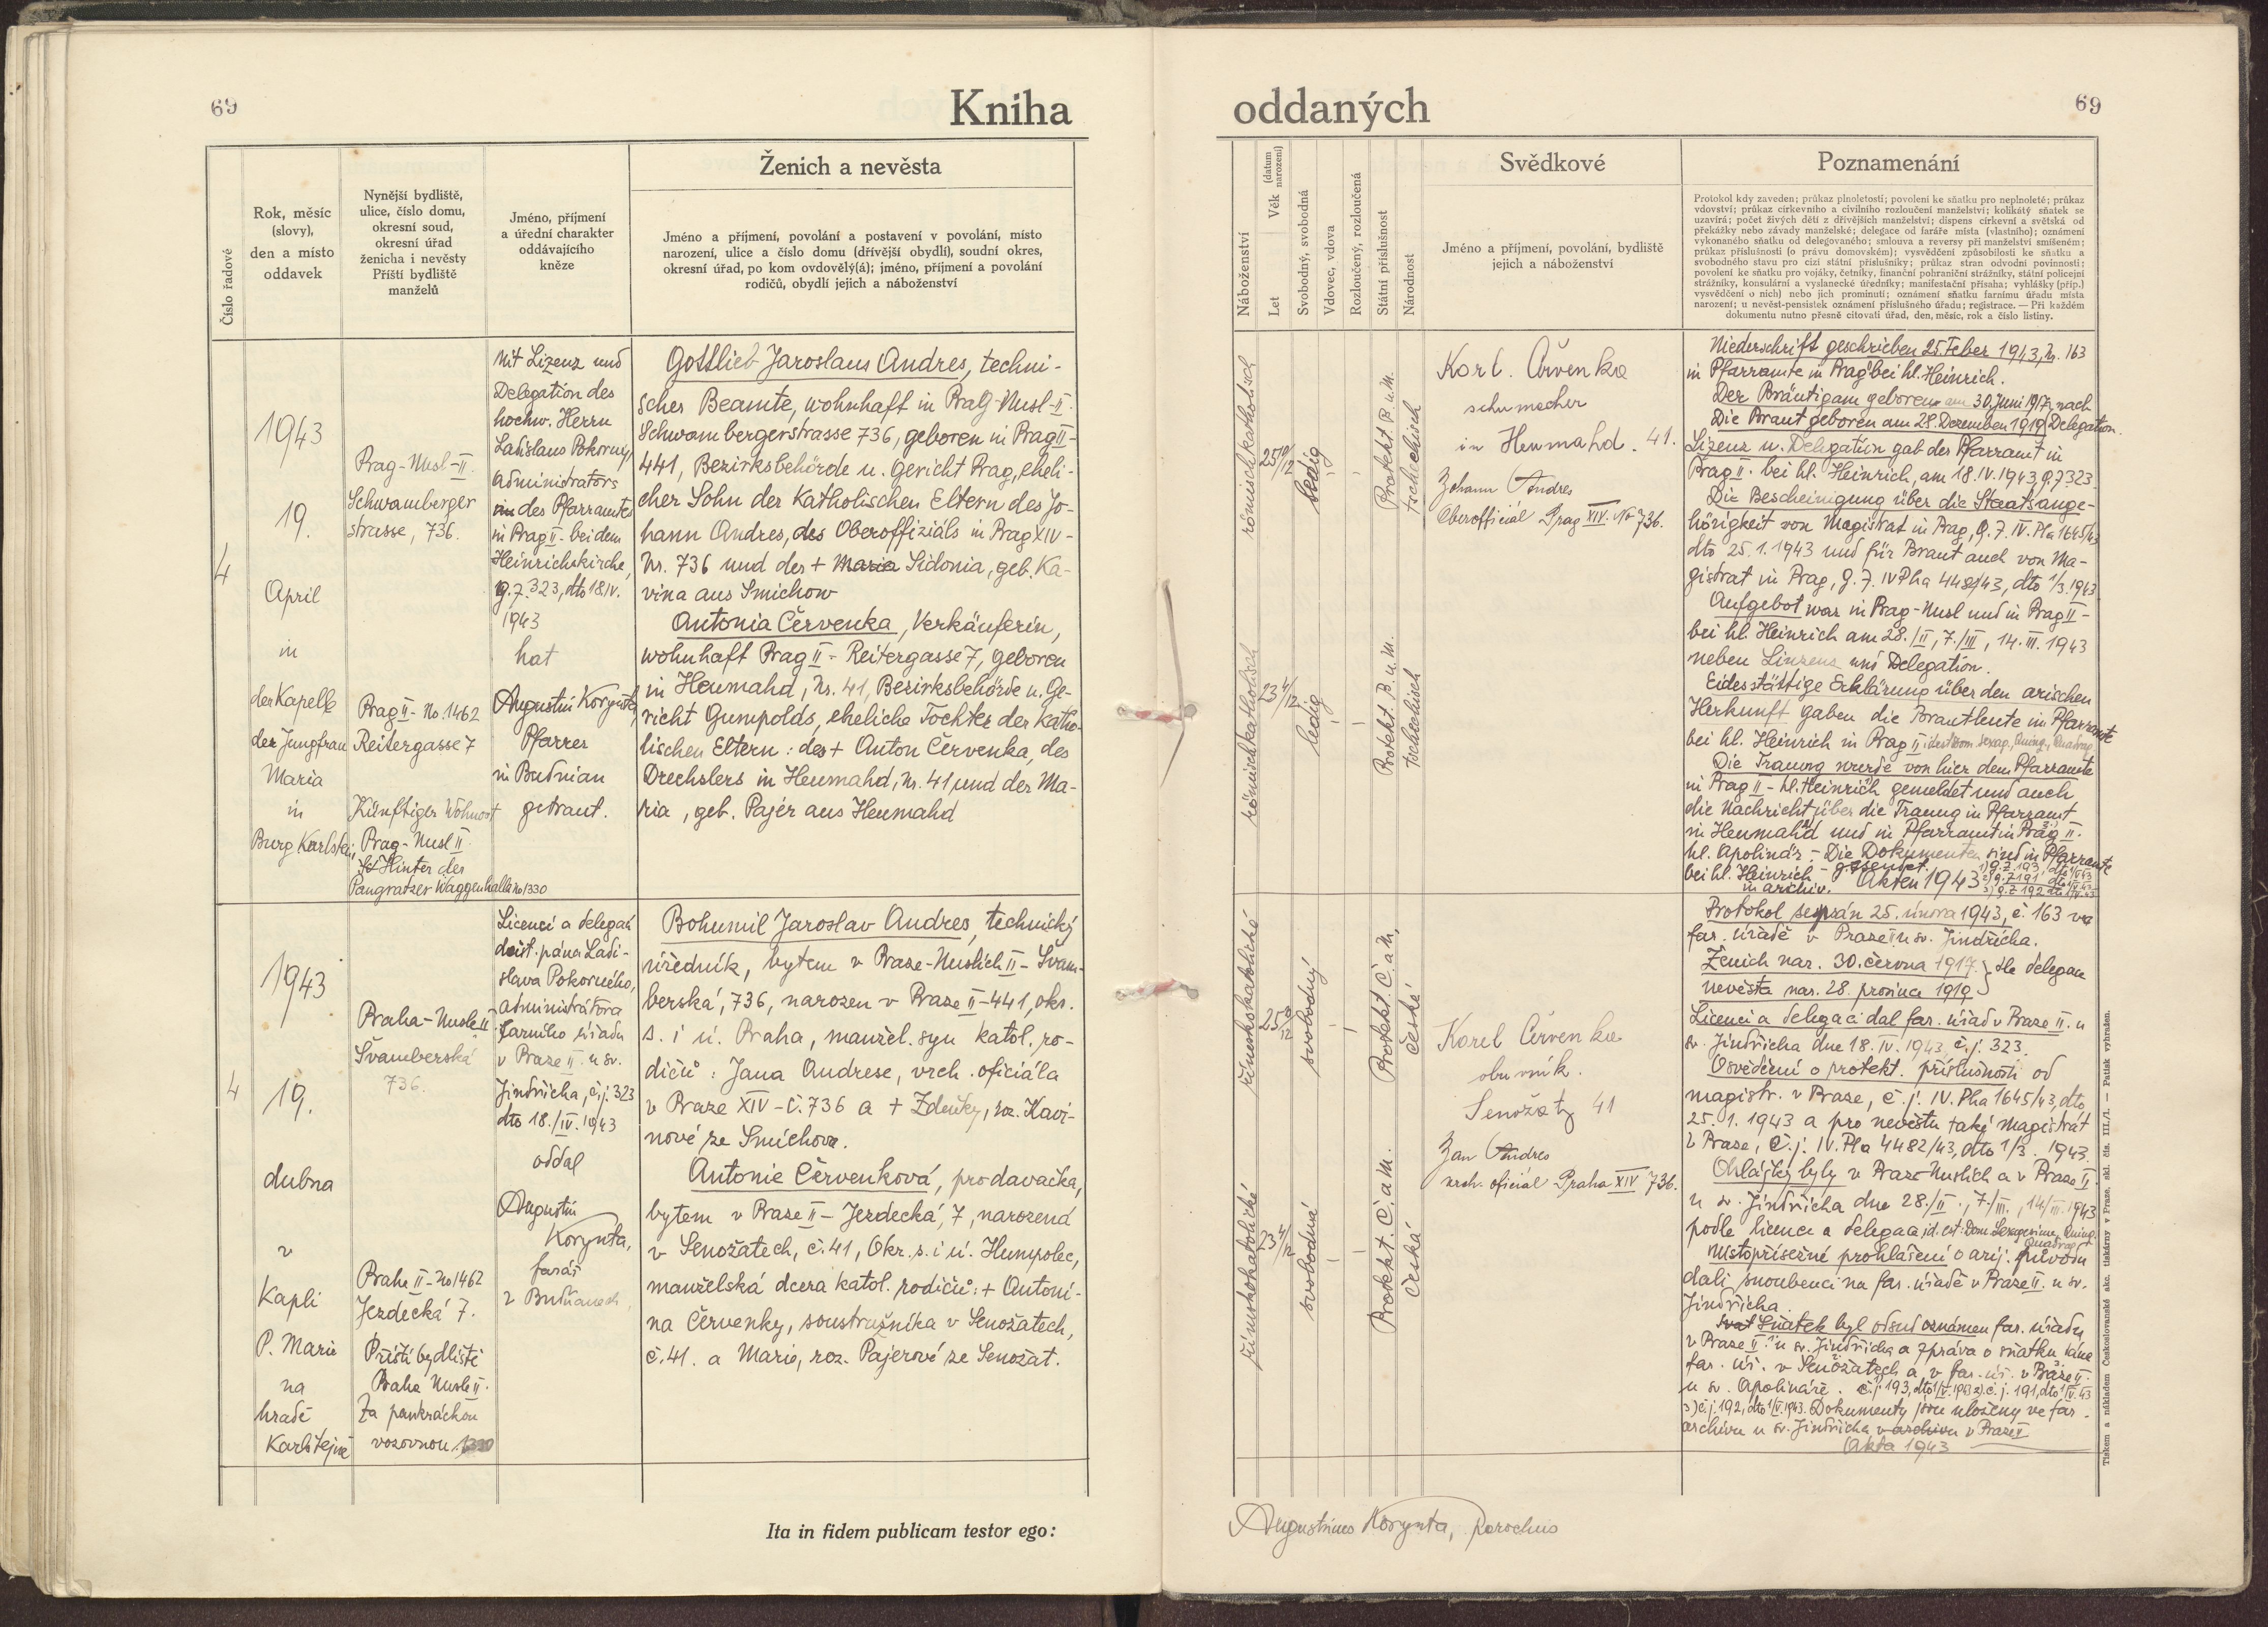 69
Kniha
Číslo řadové
Rok, měsíc
(slovy),
den a místo
oddavek
Nynější bydliště,
ulice, číslo domu,
okresní soud,
okresní úřad
ženicha i nevěsty
Příští bydliště
manželů
Jméno, příjmení
a úřední charakter
oddávajícího
kněze
Ženich a nevěsta
Jméno a příjmení, povolání a postavení v povolání, místo
narození, ulice a číslo domu (dřívější obydlí), soudní okres,
okresní úřad, po kom ovdovělý(á); jméno, příjmení a povolání
rodičů, obydlí jejich a náboženství
4
1943
19.
April
in
der Kapelle
der Jungfrau
Maria
in
Burg Karlstein
Prag-Nusl-II.
Schwamberger
strasse, 736.
Prag II - No. 1462
Reitergasse 7
Künftiger Wohnort
Prag-Nusl II.
Hinter der
Pangratzer Waggenhalle No 1330
Mit Lizenz und
Delegation des
hochw. Herrn
Ladislaus Pokorny,
Administrators
im des Pfarramtes
in Prag II - bei dem
Heinrichskirche,
g.z. 323, dto 18.IV.
1943
hat
Augustin Korynta,
Pfarrer
in Budnian
getraut.
Gottlieb Jaroslaus Andres, techni-
scher Beamte, wohnhaft in Prag-Nusl-II.
Schwambergerstrasse 736, geboren in Prag II-
441, Bezirksbehörde u. Gericht Prag, eheli-
cher Sohn der Katholischen Eltern des Jo-
hann Andres, des Oberoffiziáls in Prag XIV-
Nr. 736 und der + Maria Sidonia, geb. Ka-
vina aus Smichow
Antonia Červenka, Verkäuferin,
wohnhaft Prag II - Reitergasse 7, geboren
in Heumahd, Nr. 41, Bezirksbehörde u. Ge-
richt Gumpolds, eheliche Tochter der Katho-
lischen Eltern: des + Anton Červenka, des
Drechslers in Heumahd, Nr. 41 und der Ma-
ria, geb. Pajér aus Heumahd
4
1943
19.
dubna
v
Kapli
P. Marie
na
hradě
Karlštejně
Praha-Nusle II
Švamberská
736.
Praha II - No 1462
Jezdecká 7.
Příští bydliště
Praha Nusle II.
Za pankráckou
vozovnou 1330
Licencí a delegací
dúst. pána Ladi-
slava Pokorného,
administrátora
farního úřadu
v Praze II. u sv.
Jindřicha, č.j. 323
dto 18./IV. 1943
oddal
Augustin
Korynta,
farář
v Budňanech
Bohumil Jaroslav Andres, technický
úředník, bytem v Praze-Nuslích II - Švam-
berská, 736, narozen v Praze II-441, okr.
s. i ú. Praha, manžel. syn katol. ro-
dičů: Jana Andrese, vrch. oficiála
v Praze XIV - č. 736 a + Zdeňky, roz. Kavi-
nové ze Smíchova.
Antonie Červenková, prodavačka,
bytem v Praze II - Jezdecká, 7, narozená
v Senožatech, č. 41, Okr. s. i ú. Humpolec,
manželská dcera katol. rodičů: + Antoní-
na Červenky, soustružníka v Senožatech,
č. 41. a Marie, roz. Pajerové ze Senožat.
Ita in fidem publicam testor ego:
oddaných
69
Náboženství
Let
Věk (datum narození)
Svobodný, svobodná
Vdovec, vdova
Rozloučený, rozloučená
Státní příslušnost
Národnost
Svědkové
Jméno a příjmení, povolání, bydliště
jejich a náboženství
Poznamenání
Protokol kdy zaveden; průkaz plnoletosti; povolení ke sňatku pro neplnoleté; průkaz
vdovství; průkaz církevního a civilního rozloučení manželství; kolikátý sňatek se
uzavírá; počet živých dětí z dřívějších manželství; dispens církevní a světská od
překážky nebo závady manželské; delegace od faráře místa (vlastního); oznámení
vykonaného sňatku od delegovaného; smlouva a reversy při manželství smíšeném;
průkaz příslušnosti (o právu domovském); vysvědčení způsobilosti ke sňatku a
svobodného stavu pro cizí státní příslušníky; průkaz stran odvodní povinnosti;
povolení ke sňatku pro vojáky, četníky, finanční pohraniční strážníky, státní policejní
strážníky, konsulární a vyslanecké úředníky; manifestační přísaha; vyhlášky (příp.)
vysvědčení o nich) nebo jich prominutí; oznámení sňatku farnímu úřadu místa
narození; u nevěst-pensistek oznámení příslušného úřadu; registrace. — Při každém
dokumentu nutno přesně citovati úřad, den, měsíc, rok a číslo listiny.
römischkatholisch
25 10/12
ledig
Protekt. B. u. M.
tschechisch
römischkatholisch
23 4/12
ledig
Protekt. B. u. M.
tschechisch
Karl Červenka
schumacher
in Heumahd. 41.
Johann Andres
Oberofficiál Prag XIV. No 736.
Niederschrift geschrieben 25. Feber 1943, Nr. 163
in Pfarramte in Prag bei hl. Heinrich.
Der Bräutigam geboren am 30. Juni 1917, nach
Die Braut geboren am 28. Dezember 1919 Delegation.
Lizenz u. Delegation gab der Pfarramt in
Prag II. bei hl. Heinrich, am 18.IV.1943, g.z 323
Die Bescheinigung über die Staatsange-
hörigkeit von Magistrat in Prag, g.z. IV. Pla 1645/43
dto 25.1.1943 und für Braut auch von Ma-
gistrat in Prag, g.z. IV Pha 4482/43, dto 1/3.1943
Aufgebot war in Prag-Nusl und in Prag II -
bei hl. Heinrich am 28./II, 7./III, 14.III.1943
neben Linzenz und Delegation.
Eidesstättige Erklärung über den arischen
Herkunft gaben die Brautleute im Pfarramte
bei hl. Heinrich in Prag II id est Dom Sexag., Quing., Quadrag.
Die Trauung wurde von hier dem Pfarramte
in Prag II - hl. Heinrich gemeldet und auch
die Nachricht über die Trauung in Pfarramt
in Heumahd und in Pfarramt in Prag II.
hl. Apolinár - Die Dokumenten sind in Pfarramte
bei hl. Heinrich - gesendet.
in archiv. Akten 1943
římskokatolické
25 10/12
svobodný
Protekt. Č. a M.
české
římskokatolické
23 4/12
svobodná
Protekt. Č. a M.
česká
Karel Červenka
obuvník.
Senožaty 41
Jan Andres
vrch. oficiál Praha XIV 736.
Protokol sepsán 25. února 1943, č. 163 na
far. úřadě v Praze II u sv. Jindřicha.
Ženich nar. 30. června 1917 } dle delegace
nevěsta nar. 28. prosince 1919
Licenci a delegaci dal far. úřad v Praze II. u
sv. Jindřicha dne 18.IV.1943, č.j. 323.
Osvědčení o protekt. příslušnosti od
magistr. v Praze, č.j. IV. Pha 1645/43, dto
25.1.1943 a pro nevěstu také magistrát
v Praze, č.j. IV. Pla 4482/43, dto 1/3. 1943.
Ohlášky byly v Praze-Nuslích a v Praze II.
u sv. Jindřicha dne 28./II., 7/III., 14/III. 1943
podle licence a delegace id. est: Dom. Sexagesima, Quing.
Quadrag.
Místopřísežné prohlášení o arij. původu
dali snoubenci na far. úřadě v Praze II. u sv.
Jindřicha.
Sňatek byl odsud oznámen far. úřadu
v Praze II. u sv. Jindřicha a zpráva o sňatku dána
far. úř. v Senožatech a v far. úř. v Praze II.
u sv. Apolináře. č.j. 193, dto 1/V.1943 2) č.j. 191, dto 1/V.43
3) č.j. 192, dto 1/V.1943. Dokumenty jsou uloženy ve far.
archivu u sv. Jindřicha v archivu v Praze II
Akta 1943
Tiskem a nákladem Československé akc. tiskárny v Praze, skl. čís. III./1. — Patisk vyhražen.
Augustinus Korynta, Parochus